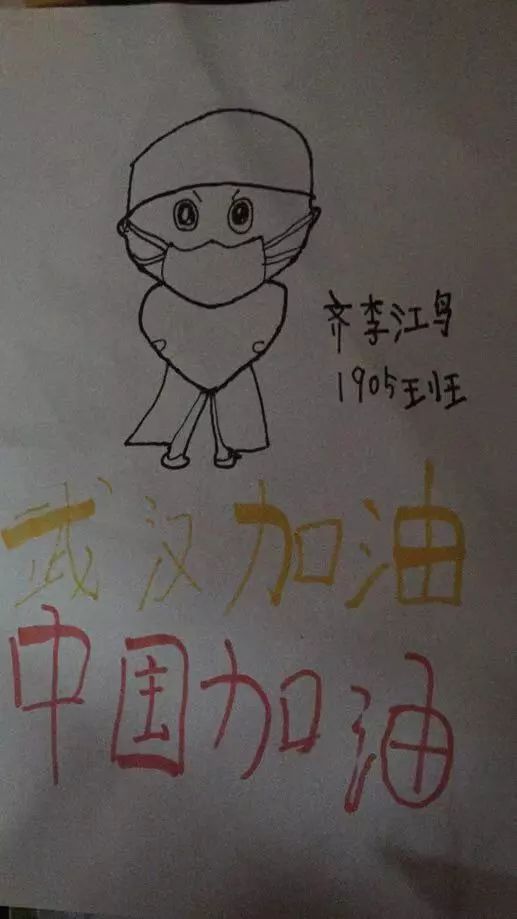 齐李江鸟
1905班
武汉加油
中国加油